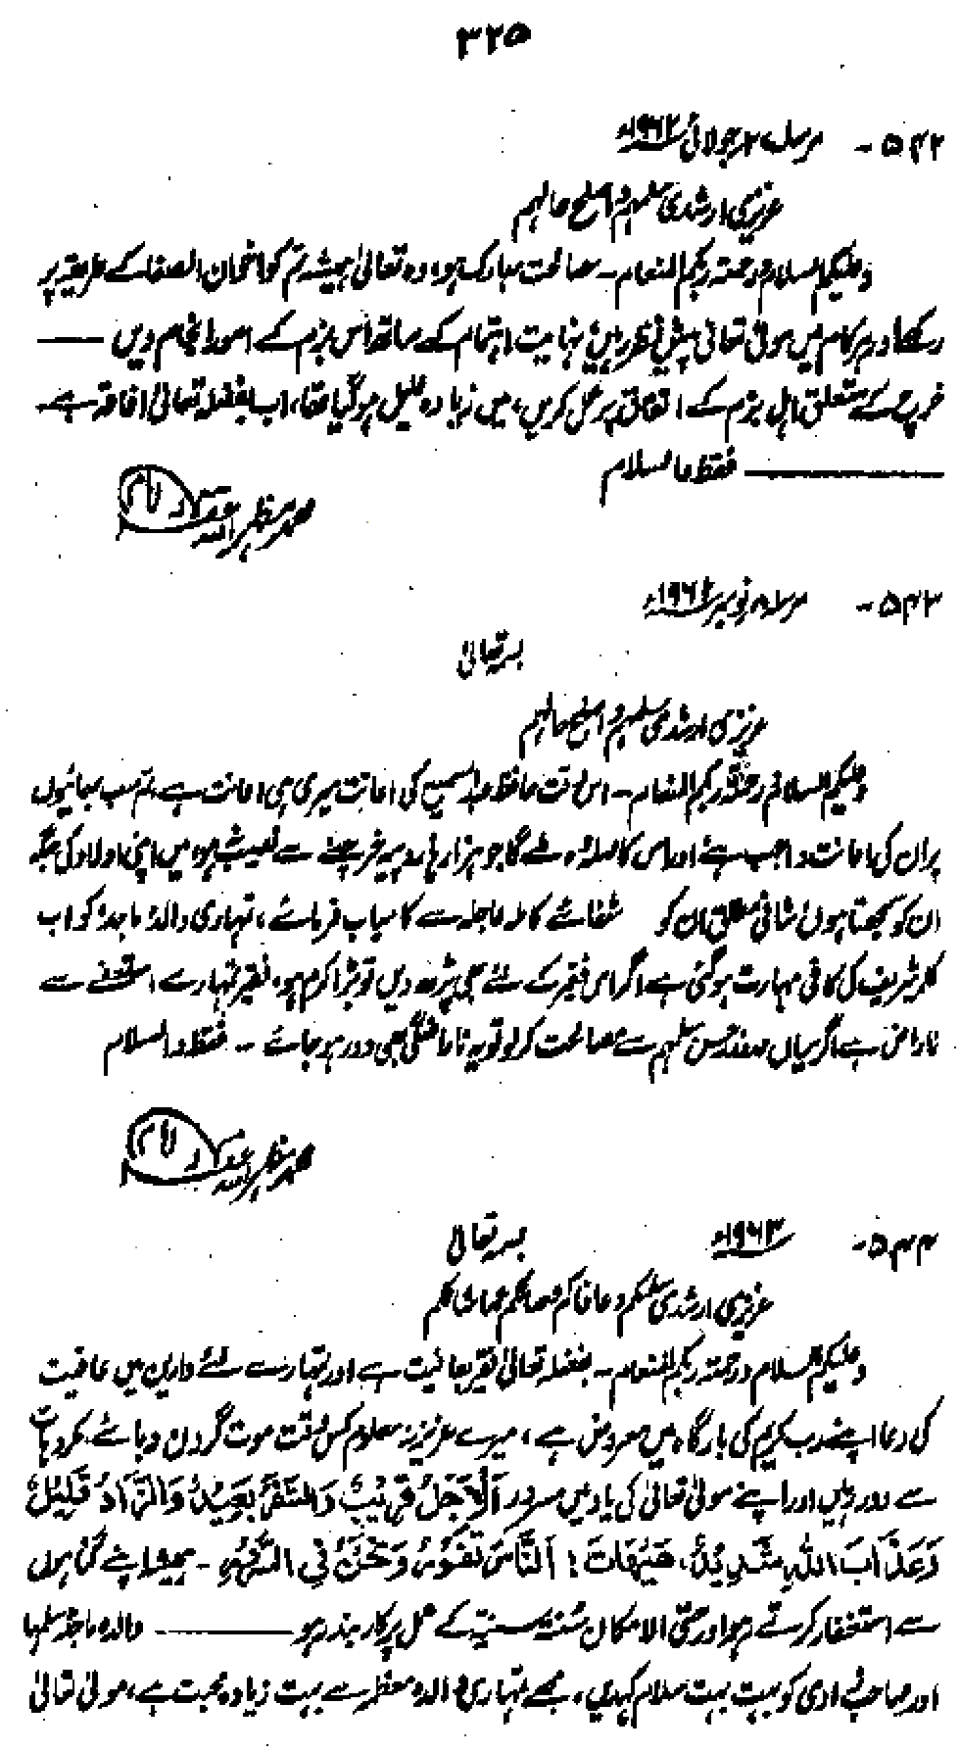 ۳۲۵
۵۴۲- مرسلہ ۲ جولائی ۱۹۶۲ء
عزیزی ارشدی سلمہم و اصلح حالہم
وعلیکم السلام ورحمۃ ربکم المنعام - مصالحت مبارک ہو، وہ تعالیٰ ہمیشہ تم کو اخوان الصفا کے طریقہ پر
رکھے اور ہر کام میں مولیٰ تعالیٰ پیش نظر رہیں، نہایت اہتمام کے ساتھ اس بزم کے امور انجام دیں ——
خرچ کے متعلق اہل بزم کے اتفاق پر عمل کریں، میں زیادہ علیل ہوگیا تھا، اب بفضلہ تعالیٰ افاقہ ہے۔
—————— فقط والسلام
محمد مظہر اللہ
۵۴۳- مرسلہ ۸ نومبر ۱۹۶۲ء
بسمہ تعالیٰ
عزیزی ارشدی سلمہم و اصلح حالہم
وعلیکم السلام ورحمۃ ربکم المنعام - اس وقت حافظ عبدالسمیع کی اعانت میری ہی اعانت ہے، تم سب بھائیوں
پر ان کی اعانت واجب ہے اور اس کا صلہ وہ ملے گا جو ہزارہا روپیہ خرچنے سے نصیب نہ ہو میں اپنی اولاد کی جگہ
ان کو سمجھتا ہوں شافی مطلق ان کو شفائے کاملہ عاجلہ سے کامیاب فرمائے، تمہاری والدہ ماجدہ کو اب
کلمہ شریف کی کافی مہارت ہوگئی ہے اگر اس فقیر کے لئے بھی پڑھ دیں تو بڑا کرم ہو، فقیر تمہارے استعفے سے
ناراض ہے اگر میاں صفدر حسن سلمہم سے مصالحت کرلو تو یہ ناراضگی بھی دور ہو جائے -- فقط والسلام
محمد مظہر اللہ
۵۴۴- ۱۹۶۳ء بسمہ تعالیٰ
عزیزی ارشدی سلمکم وعافاکم
وعلیکم السلام ورحمۃ ربکم المنعام - بفضلہ تعالیٰ فقیر بعافیت ہے اور تمہارے لئے دارین میں عافیت
کی دعا اپنے رب کریم کی بارگاہ میں معروض ہے، میرے عزیز نہ معلوم کس وقت موت گردن دبائے مکروہات
سے دور رہیں اور اپنے مولیٰ تعالیٰ کی یاد میں مسرور اَلْاَجَلُ قَرِیْبٌ وَالسَّفَرُ بَعِیْدٌ وَالزَّادُ قَلِیْلٌ
وَعَذَابَ اللّٰہِ شَدِیْدٌ، ھَیْھَاتَ! اَلنَّاسَ تَفَوَّہُ وَنَحْنُ فِی - ہمیشہ اپنے گناہوں
سے استغفار کرتے رہو اور حتی الامکان سُنّت سنیّہ کے عمل پر کاربند رہو ———— والدہ ماجدہ سلمہا
اور صاحبزادی کو بہت بہت سلام کہدیں، مجھے تمہاری والدہ معظمہ سے بہت زیادہ محبت ہے، مولیٰ تعالیٰ